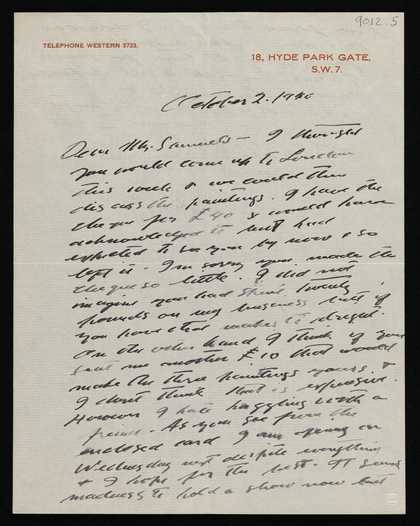 9012.5
TELEPHONE WESTERN 3723.
18, HYDE PARK GATE,
S.W.7.
October 2. 1940
Dear Mr. Samuels — I thought
you would come up to London
this week & we could then
discuss the paintings. I have the
cheque for £40 & would have
acknowledged it but had
expected to see you by now & so
left it. I'm sorry you made the
cheque so little. I did not
imagine you had spent twenty
pounds on my business but if
you have that makes it alright.
On the other hand I think if you
send me another £10 that would
make the three paintings yours. &
I don't think that is expensive.
However I hate haggling with a
friend. As you see from the
enclosed card I am opening on
Wednesday next despite everything
& I hope for the best. It seems
madness to hold a show now but